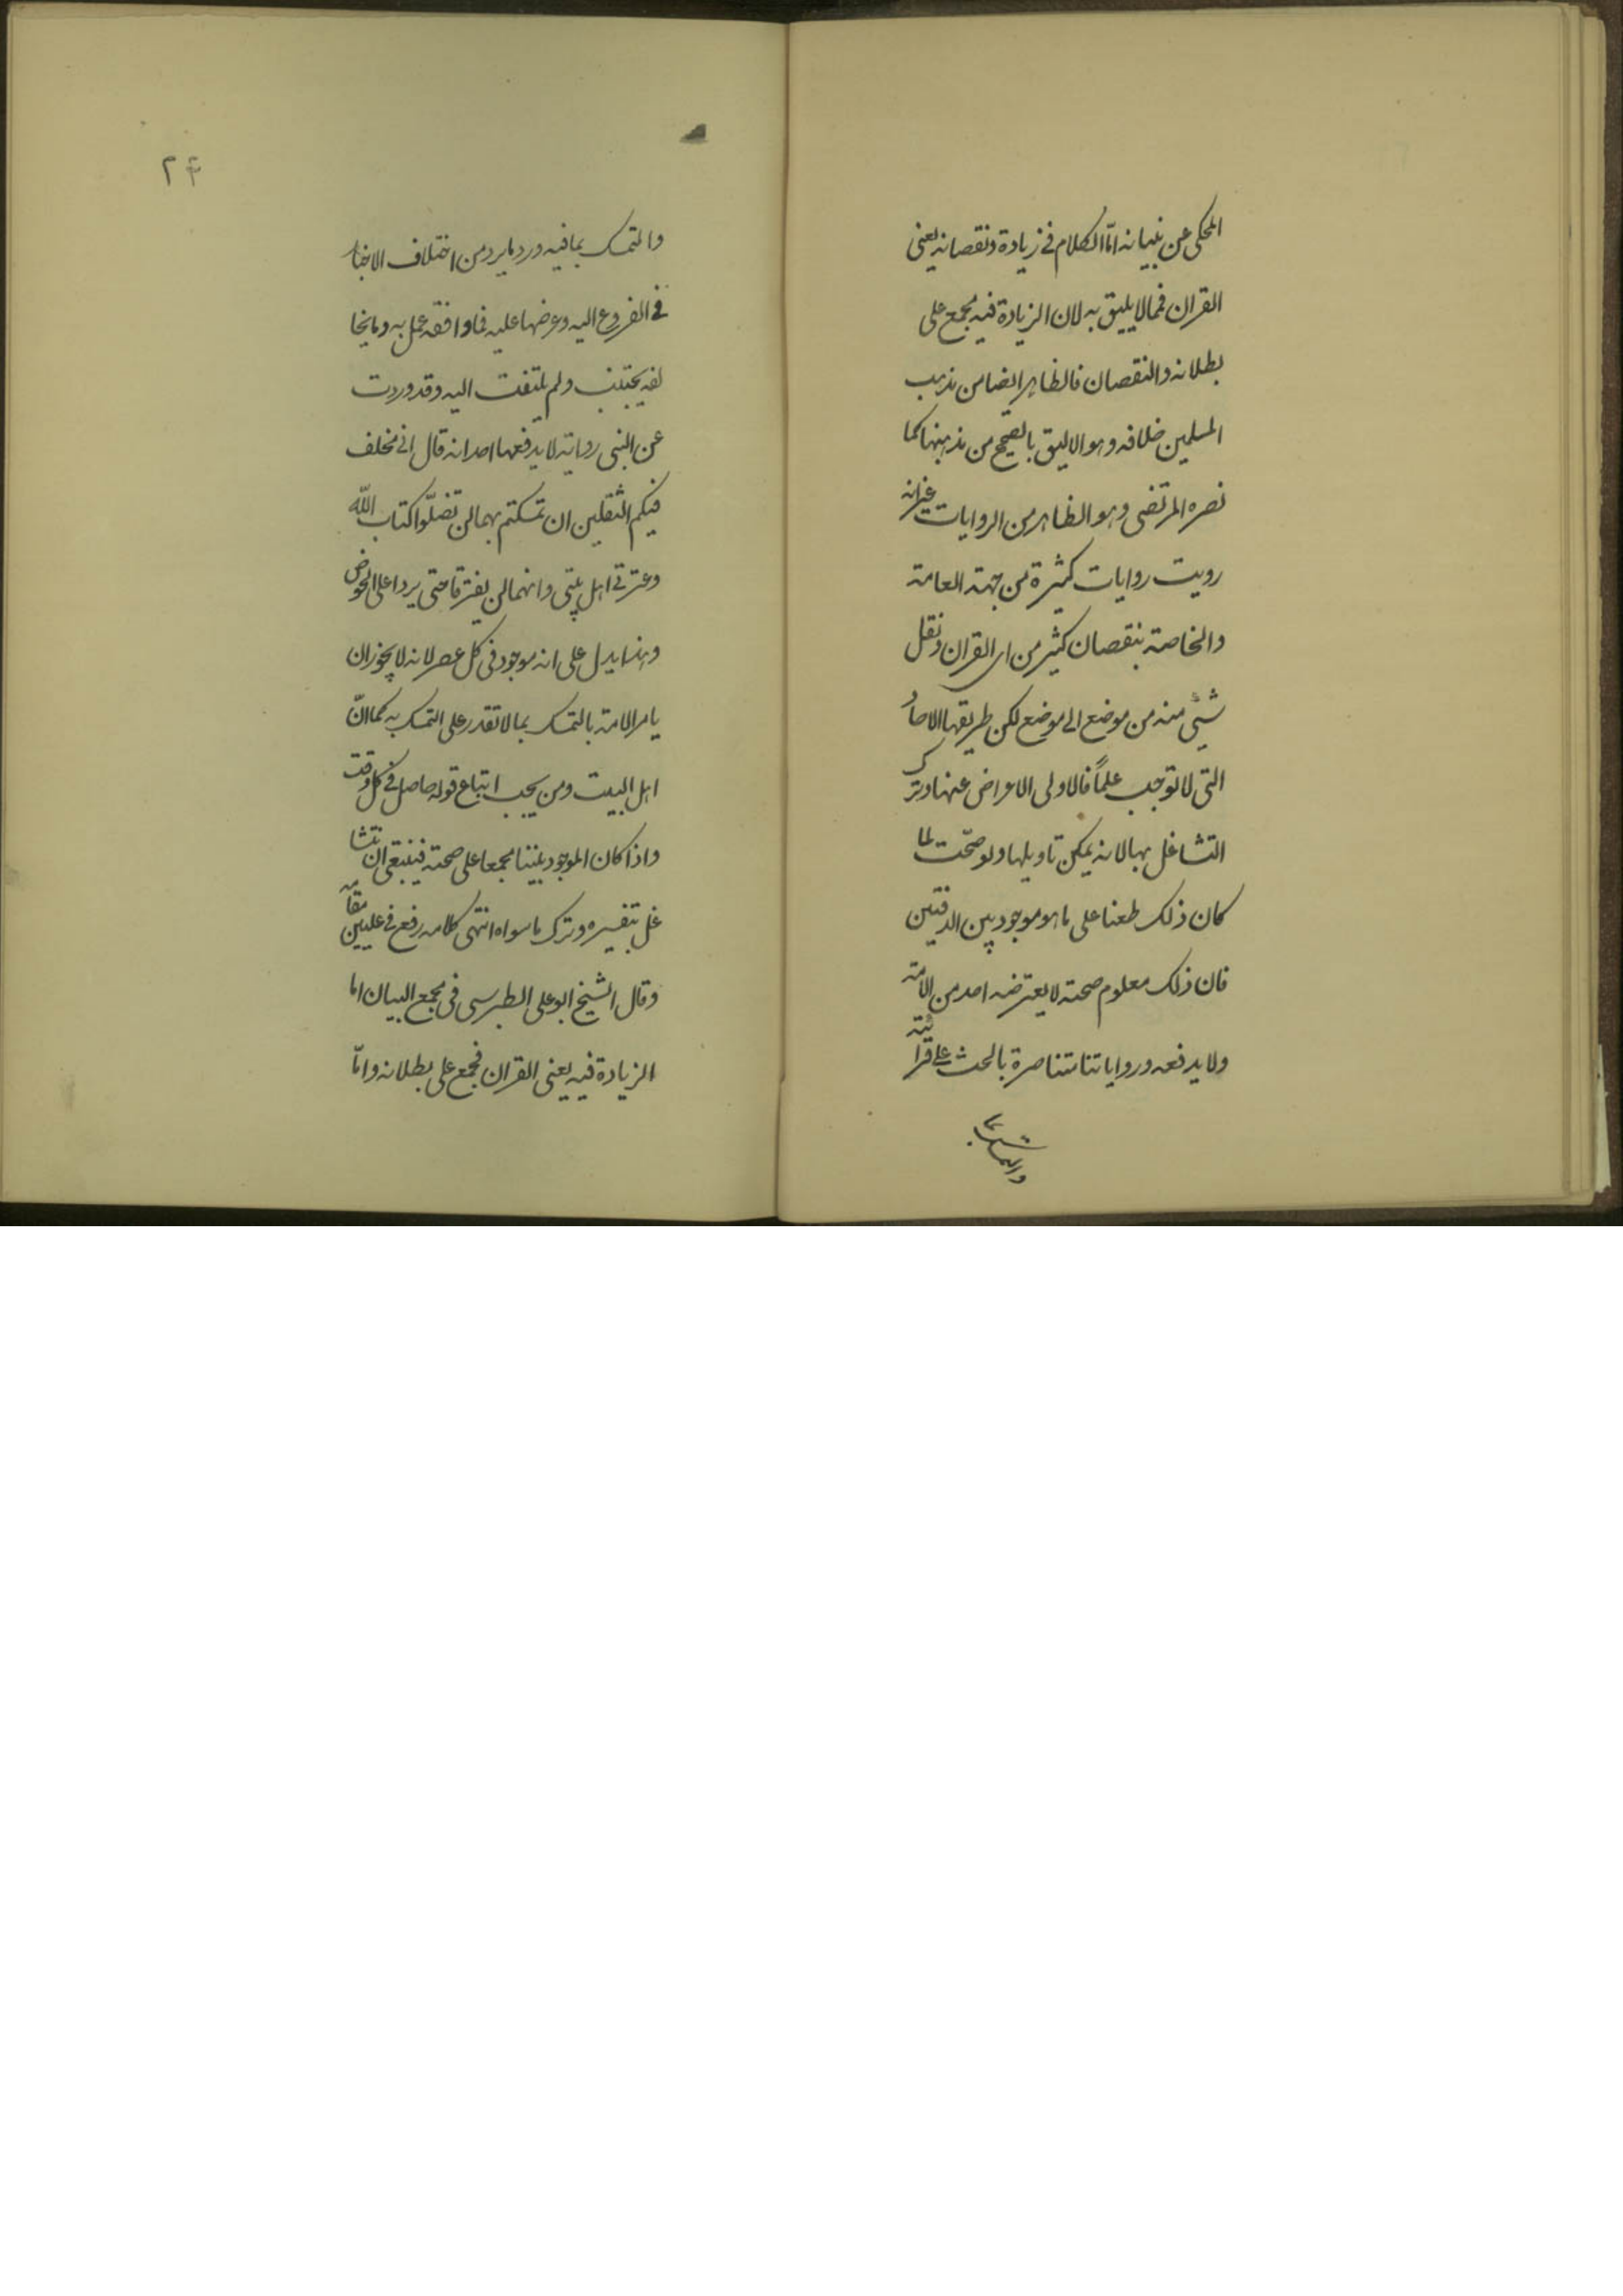 المحكى عن تبيانه امّا الكلام فى زيادة ونقصانه يعنى
القران فمما لا يليق به لان الزيادة فيه مجمع على
بطلانه والنقصان فالظاهر ايضا من مذهب
المسلمين خلافه وهو الاليق بالصحيح من مذهبنا كما
نصره المرتضى وهو الظاهر من الروايات غير انه
رويت روايات كثيرة من جهة العامة
والخاصة بنقصان كثير من اى القران ونقل
شيئ منه من موضع الى موضع لكن طريقها الاحاد
التى لا توجب علماً فالاولى الاعراض عنها وترك
التشاغل بها لانه يمكن تاويلها ولو صحّت لما
كان ذلك طعنا على ما هو موجود بين الدفتين
فان ذلك معلوم صحته لا يعترضه احد من الامة
ولا يدفعه ورواياتنا متناصرة بالحث على قرائته
والتمسك بما
۲۴
والتمسك بما فيه ورد ما يرد من اختلاف الاخبار
فى الفروع اليه وعرضها عليه فما وافقه عمل به وما يخا
لفه يجتنب ولم يلتفت اليه وقد وردت
عن النبى رواية لا يدفعها احد انه قال انى مخلف
فيكم الثقلين ان تمسكتم بهما لن تضلّوا كتاب اللّه
وعترتى اهل بيتى وانهما لن يفترقا حتى يردا على الحوض
وهذا يدل على انه موجود فى كل عصر لانه لا يجوز ان
يامر الامة بالتمسك بما لا تقدر على التمسك به كما انّ
اهل البيت ومن يجب اتباع قوله حاصل فى كل وقت
واذا كان الموجود بيننا مجمعا على صحته فينبغى ان نتشا
غل بتفسيره وترك ما سواه انتهى كلامه رفع فى عليين مقامه
وقال الشيخ ابو على الطبرسى فى مجمع البيان اما
الزيادة فيه يعنى القران فمجمع على بطلانه وامّا